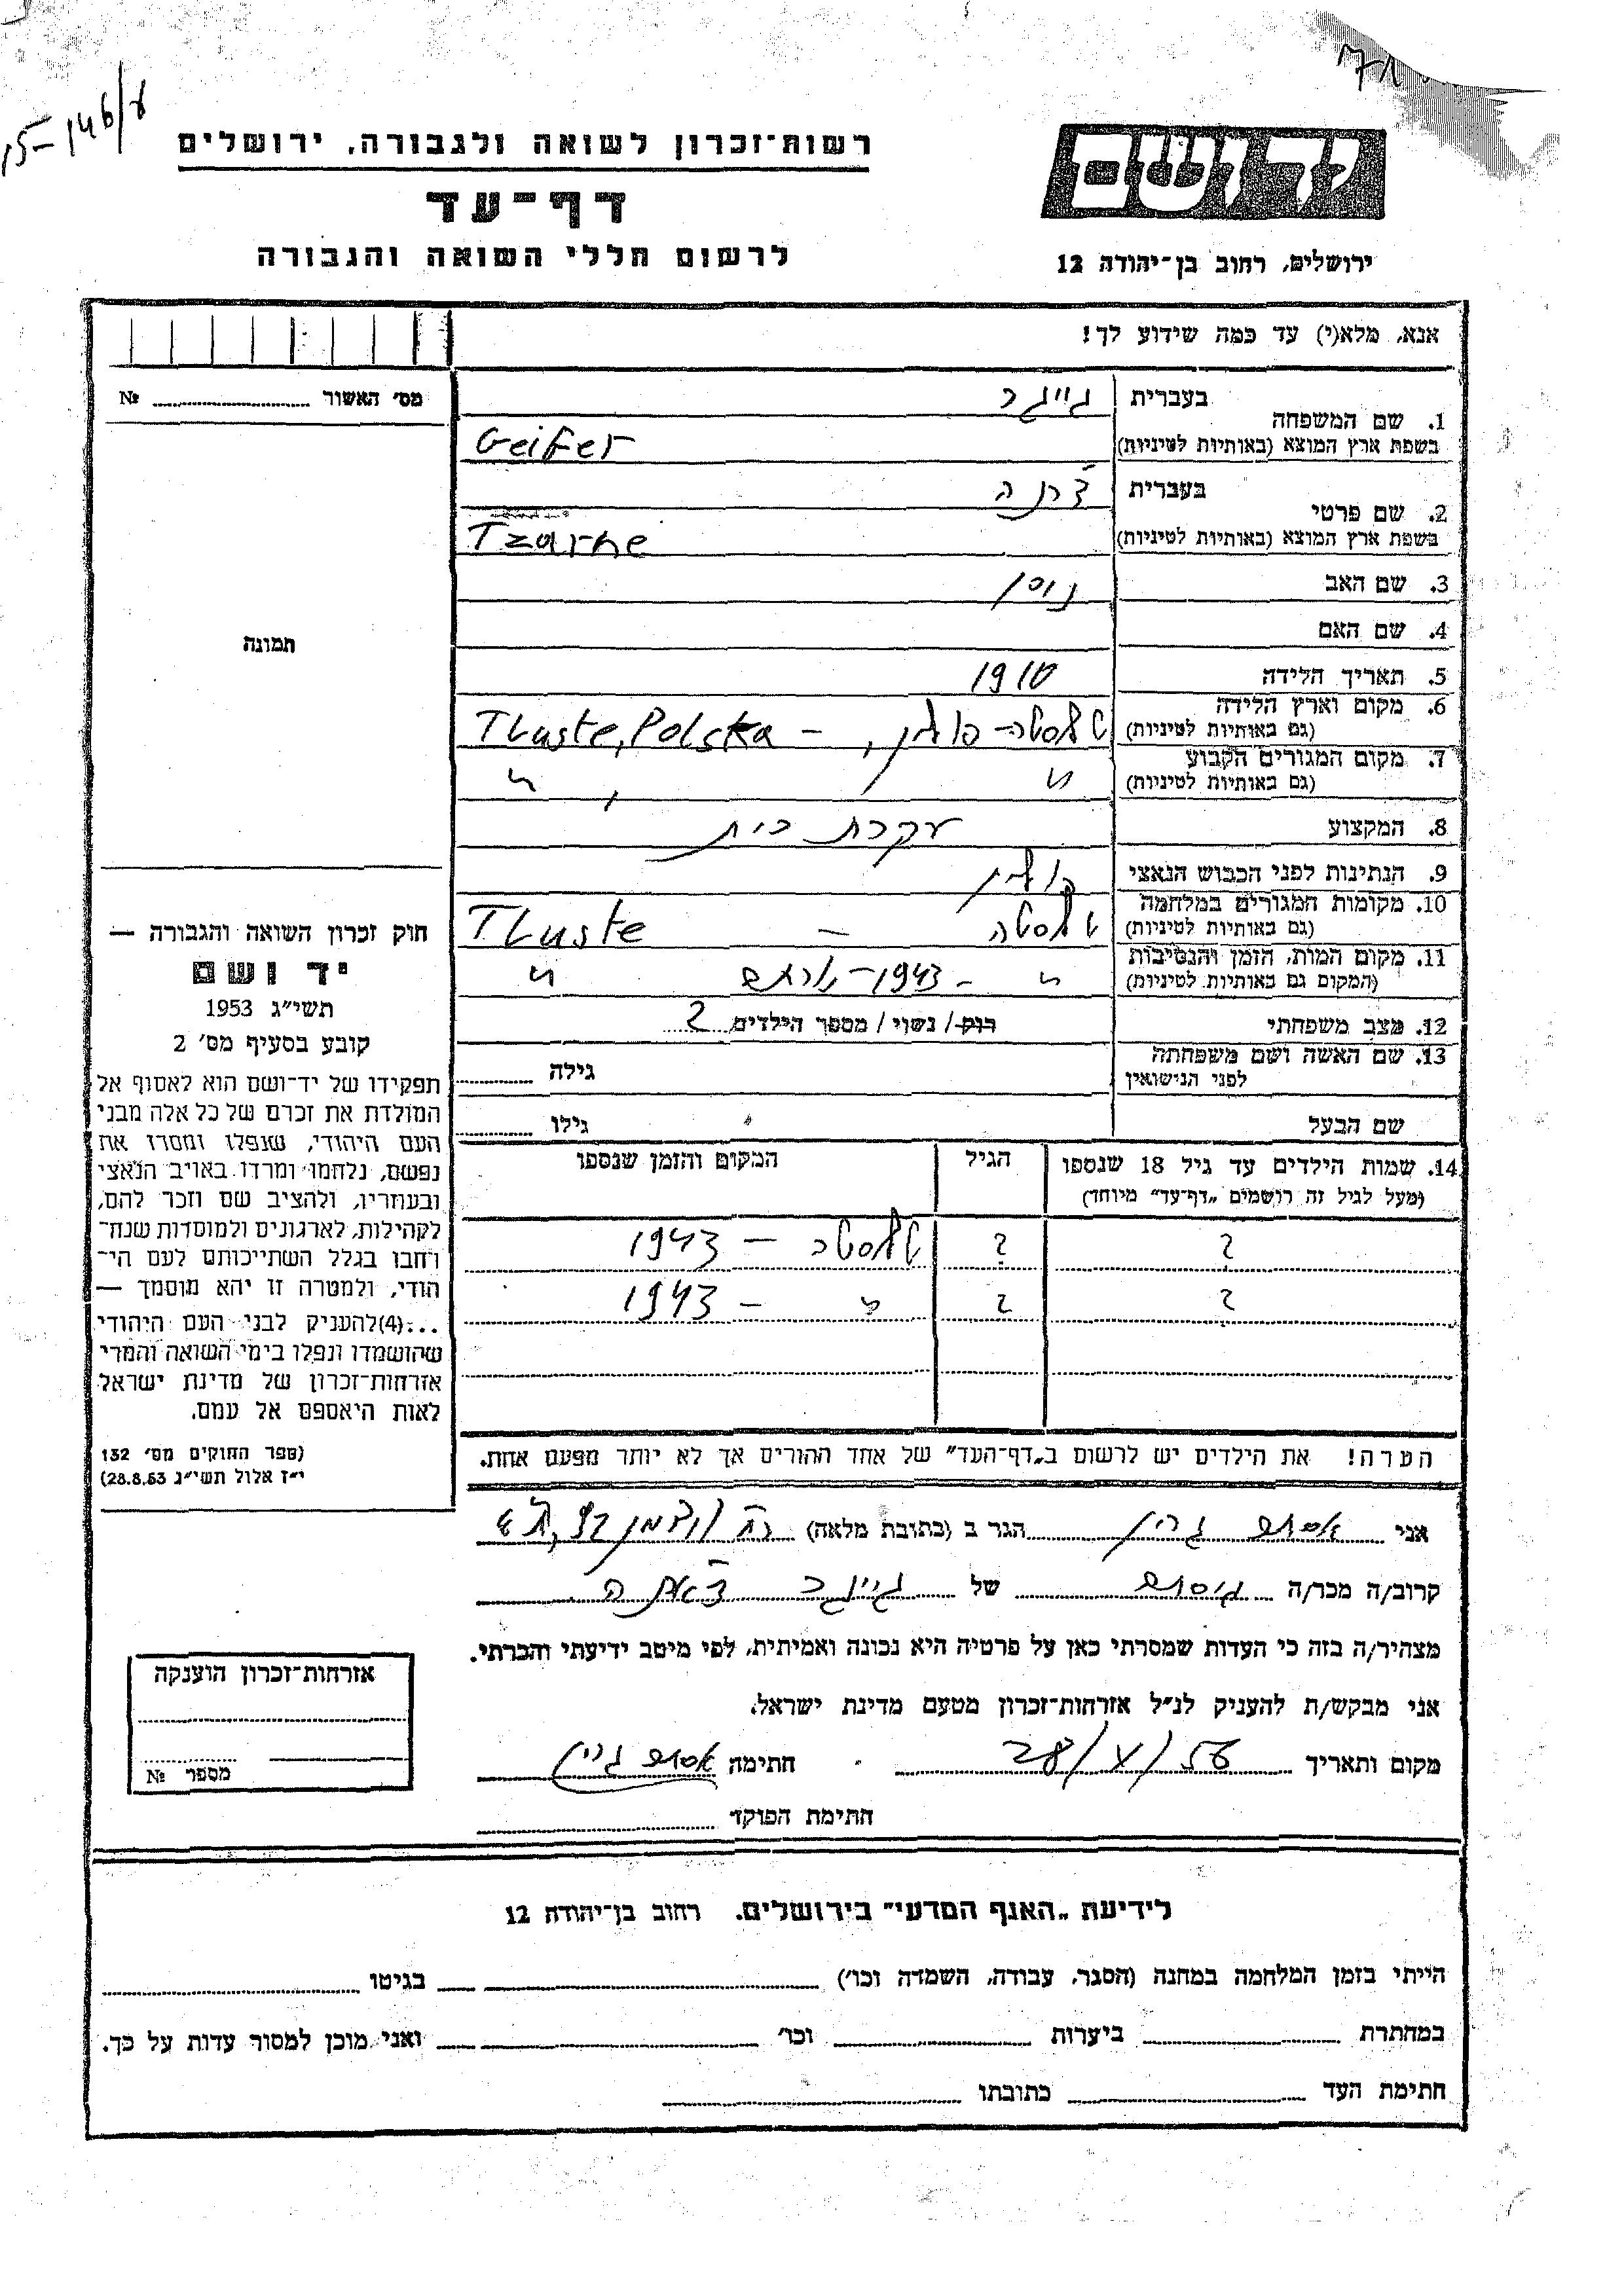 15-146/8
רשות־זכרון לשואה ולגבורה, ירושלים
דף־עד
לרשום חללי השואה והגבורה
יד ושם
ירושלים, רחוב בן־יהודה 12
אנא, מלא(י) עד כמה שידוע לך!
מס׳ האשור № 
1. שם המשפחה בעברית
בשפת ארץ המוצא (באותיות לטיניות) Geifer
2. שם פרטי בעברית צרנה
בשפת ארץ המוצא (באותיות לטיניות) Tzarne
3. שם האב
4. שם האם
5. תאריך הלידה 1910
6. מקום וארץ הלידה טלוסטה - פולין, - Tluste, Polska
(גם באותיות לטיניות)
7. מקום המגורים הקבוע " , "
(גם באותיות לטיניות)
8. המקצוע עקרת בית
9. הנתינות לפני הכבוש הנאצי פולין
10. מקומות המגורים במלחמה טלוסטה - Tluste
(גם באותיות לטיניות)
11. מקום המות, הזמן והנסיבות " - 1943 - "
(המקום גם באותיות לטיניות)
12. מצב משפחתי רוק / נשוי / מספר הילדים 2
13. שם האשה ושם משפחתה גילה
לפני הנישואין
שם הבעל גילו
14. שמות הילדים עד גיל 18 שנספו הגיל המקום והזמן שנספו
(מעל לגיל זה רושמים „דף־עד״ מיוחד)
? ? טלוסטה - 1943
? ? " - 1943
הערה! את הילדים יש לרשום ב„דף־העד״ של אחד ההורים אך לא יותר מפעם אחת.
תמונה
חוק זכרון השואה והגבורה —
יד ושם
תשי״ג 1953
קובע בסעיף מס׳ 2
תפקידו של יד־ושם הוא לאסוף אל
המולדת את זכרם של כל אלה מבני
העם היהודי, שנפלו ומסרו את
נפשם, נלחמו ומרדו באויב הנאצי
ובעוזריו, ולהציב שם וזכר להם,
לקהילות, לארגונים ולמוסדות שנח־
רחבו בגלל השתייכותם לעם הי־
הודי, ולמטרה זו יהא מוסמך —
...(4) להעניק לבני העם היהודי
שהושמדו ונפלו בימי השואה והמרי
אזרחות־זכרון של מדינת ישראל
לאות היאספם אל עמם.
(ספר החוקים מס׳ 132
י״ז אלול תשי״ג 28.8.53)
אני אסתר גרין הגר ב (כתובת מלאה)
קרוב/ה מכר/ה גיסתה של
מצהיר/ה בזה כי העדות שמסרתי כאן על פרטיה היא נכונה ואמיתית, לפי מיטב ידיעתי והכרתי.
אני מבקש/ת להעניק לנ״ל אזרחות־זכרון מטעם מדינת ישראל.
מקום ותאריך 28/X/56 חתימה אסתר גרין
חתימת הפוקד
אזרחות־זכרון הוענקה
מספר №
לידיעת „האגף המדעי״ בירושלים. רחוב בן־יהודה 12
הייתי בזמן המלחמה במחנה (הסגר, עבודה, השמדה וכו׳) בגיטו
במחתרת ביערות וכו׳ ואני מוכן למסור עדות על כך.
חתימת העד כתובתו